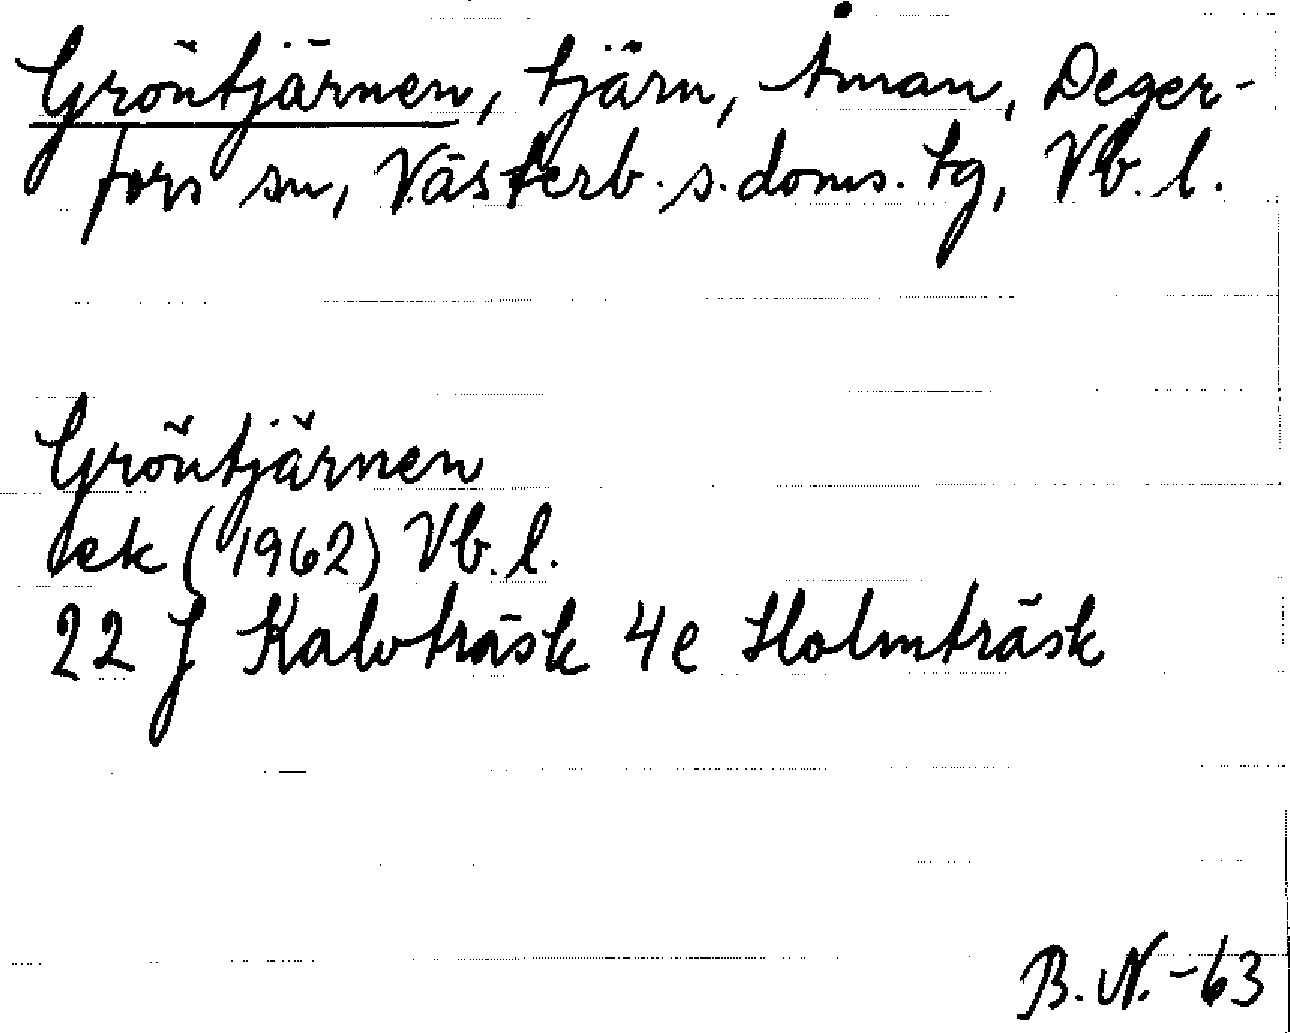 Gröntjärnen, tjärn, Åman, Deger-
fors sn, Västerb. s. doms. tg, Vb. l.
Gröntjärnen
ek (1962) Vb. l.
22 J Kalvträsk 4e Holmträsk
B. N. -63